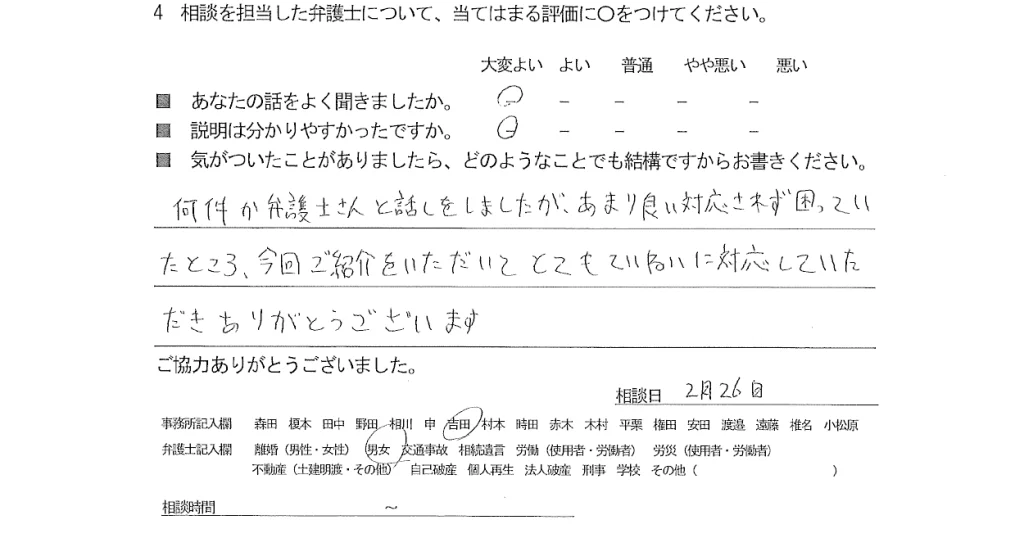 4 相談を担当した弁護士について、当てはまる評価に〇をつけてください。
大変よい よい 普通 やや悪い 悪い
■ あなたの話をよく聞きましたか。 － － － － －
■ 説明は分かりやすかったですか。 － － － － －
■ 気がついたことがありましたら、どのようなことでも結構ですからお書きください。
何件か弁護士さんと話しをしましたが、あまり良い対応されず困ってい
たところ、今回ご紹介をいただいてとてもていねいに対応していた
だきありがとうございます
ご協力ありがとうございました。
相談日 2月26日
事務所記入欄 森田 榎木 田中 野田 相川 申 吉田 村木 時田 赤木 木村 平栗 権田 安田 渡邉 遠藤 椎名 小松原
弁護士記入欄 離婚（男性・女性） 男女 交通事故 相続遺言 労働（使用者・労働者） 労災（使用者・労働者）
不動産（土建明渡・その他） 自己破産 個人再生 法人破産 刑事 学校 その他（ ）
相談時間 ～